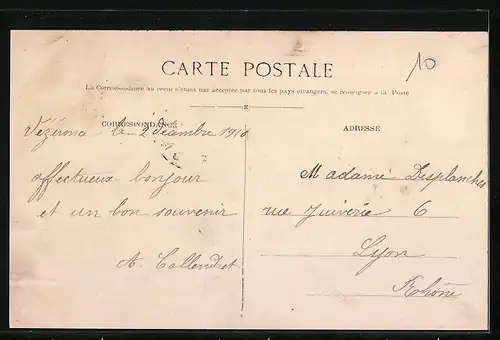 10
CARTE POSTALE
La Correspondance au recto n'étant pas acceptée par tous les pays étrangers, se renseigner à la Poste
CORRESPONDANCE
ADRESSE
Vézeronce le 2 Décembre 1910
affectueux bonjour
et un bon souvenir
A.
Madame Desplanches
rue Juiverie 6
Lyon
Rhône